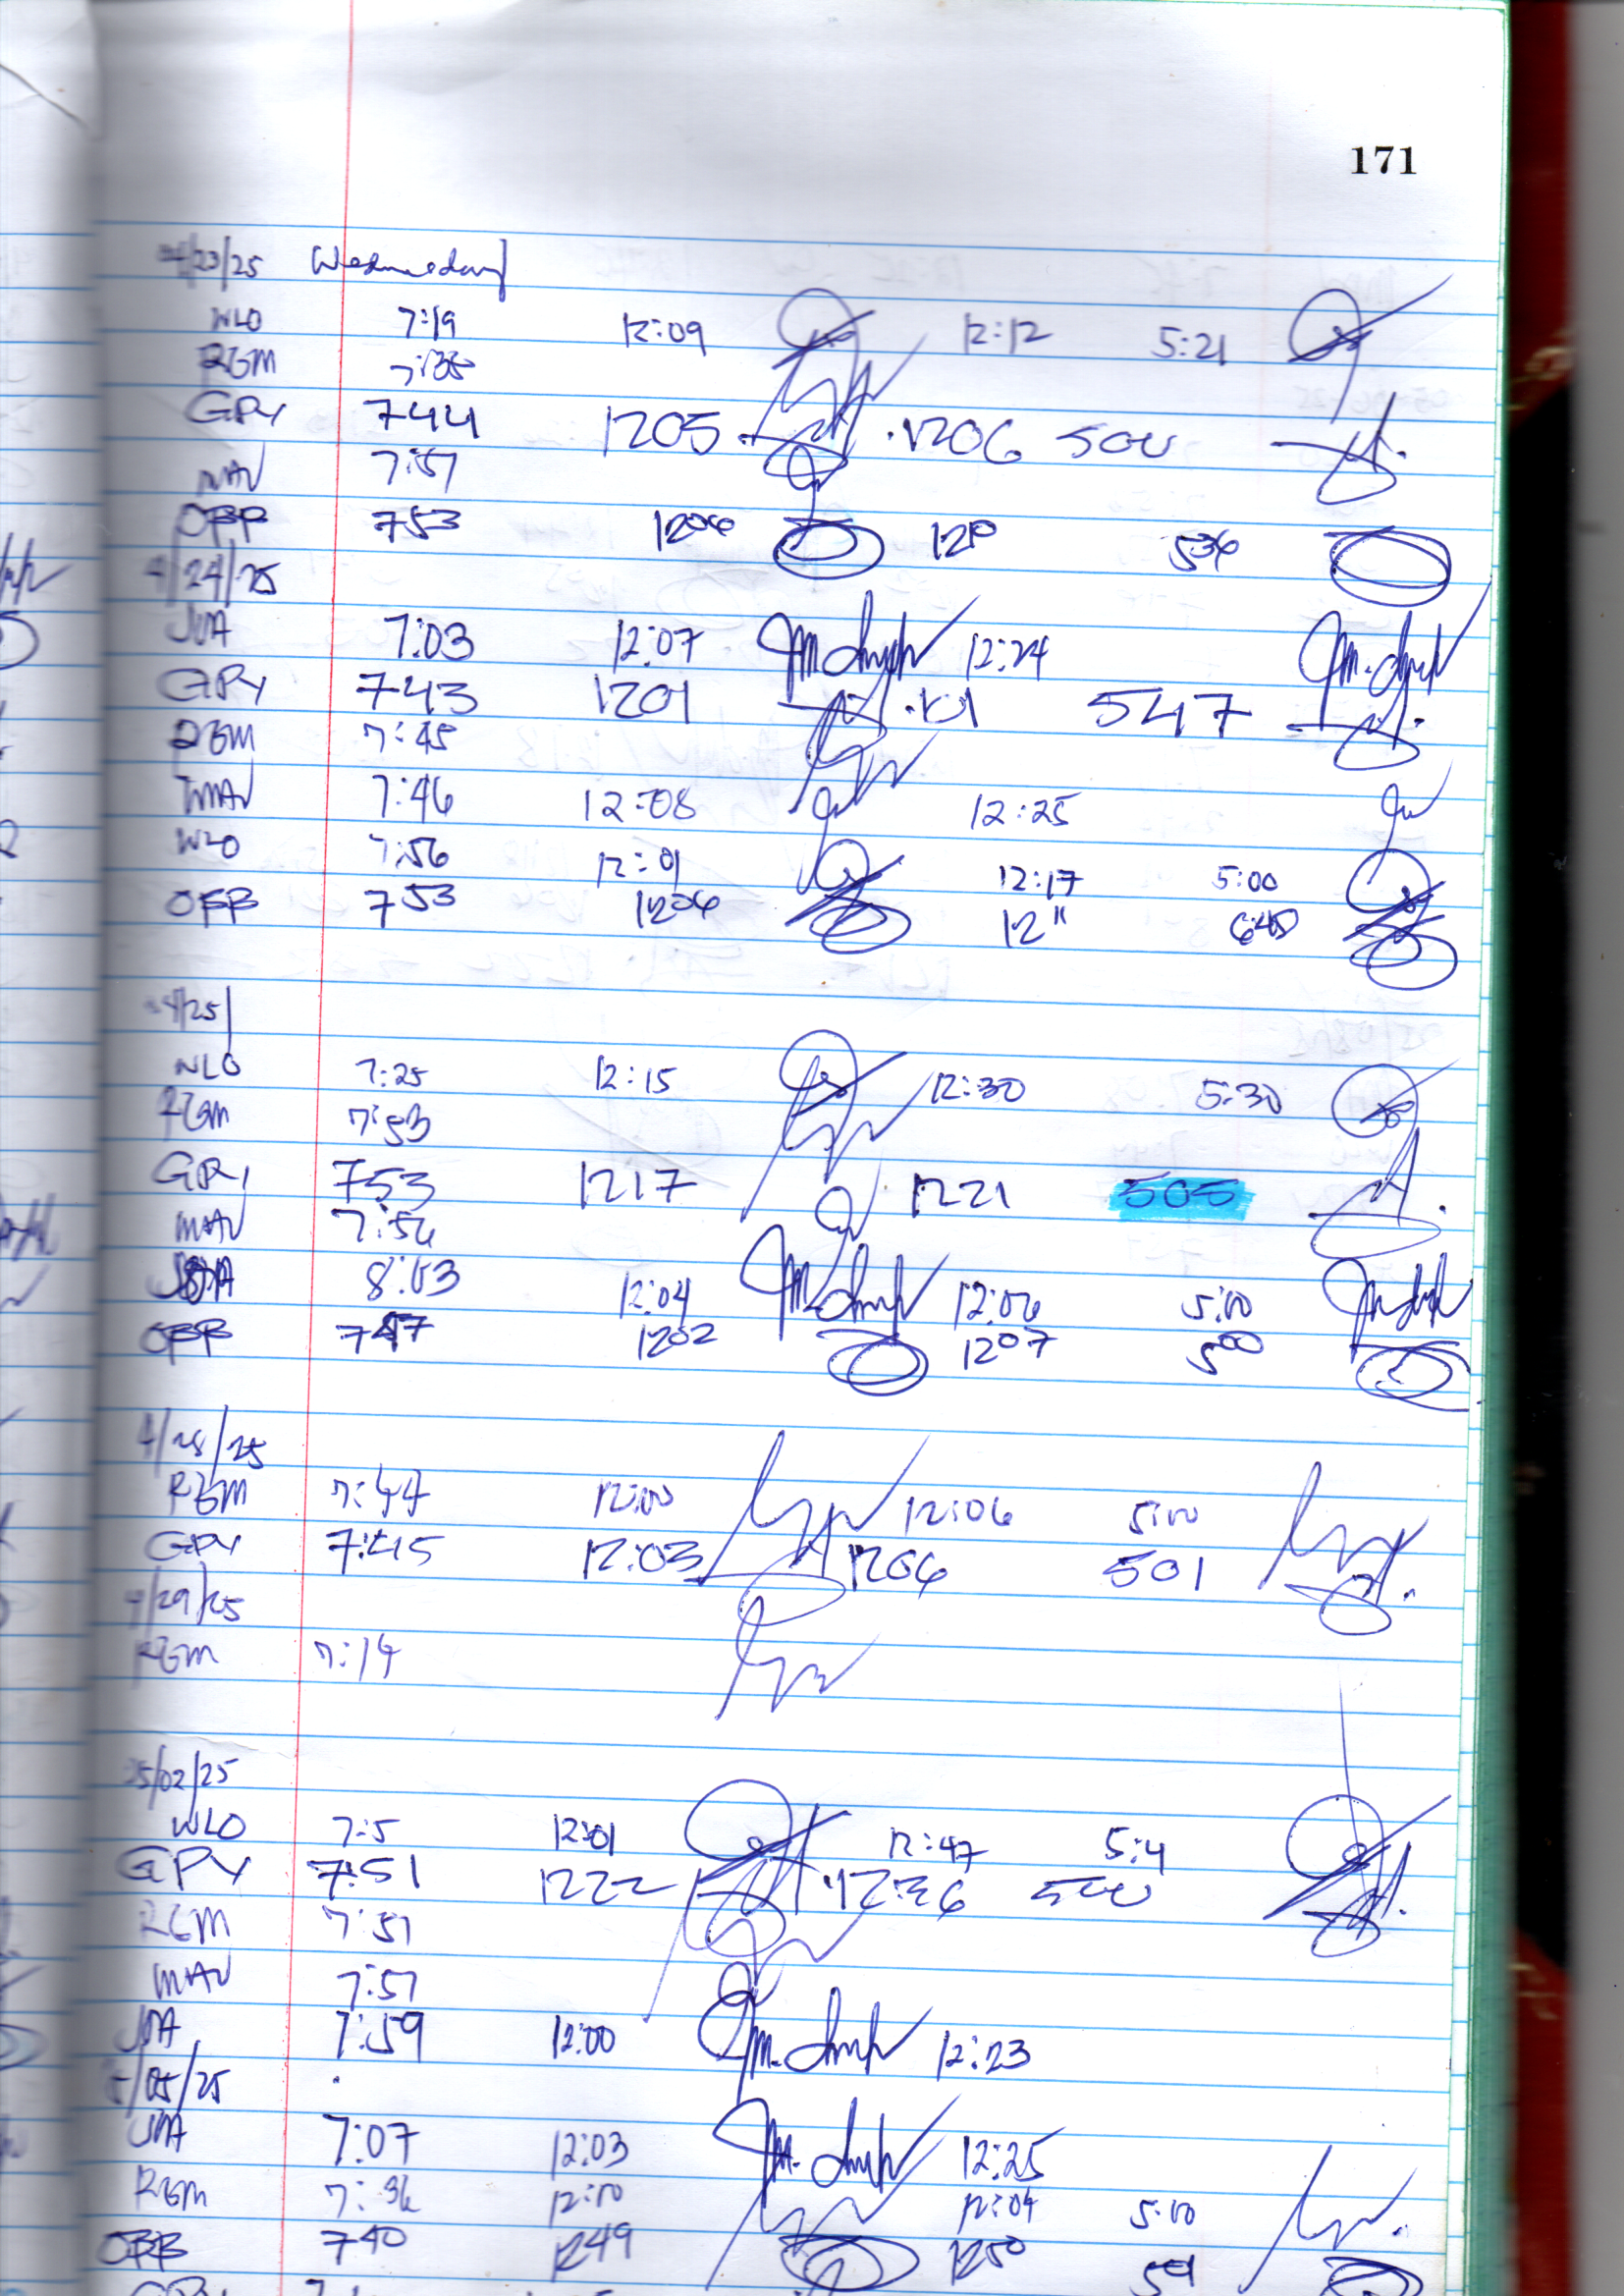 171
4/23/25 Wednesday
WLO 7:19 12:09 12:12 5:21
RGM 7:35
GPY 744 1205 1206 500
MAV 7:57
OBB 753 1206 536
4/24/25
JMA 7:03 12:07 12:24
GPY 743 1201 547
RGM 7:45
MAV 7:46 12:08 12:25
WLO 7:56 12:01 12:17 5:00
OBB 753 1206 12"
4/25/
WLO 7:25 12:15 12:30 5:30
RGM 7:53
GPY 753 1217 1221 505
MAV 7:56
JMA 8:03 12:04 12:06 5:00
OBB 1202 1207 500
4/28/25
RGM 7:44 12:00 12:06 5:00
GPY 7:45 12:03 1206 501
4/29/25
RGM 7:14
05/02/25
WLO 7:5 12:01 12:47 5:4
GPY 7:51 1222 12:36 500
RGM 7:51
MAV 7:57
JMA 7:59 12:00 12:23
5/05/25
JMA 7:07 12:03 12:25
RGM 7:36 12:00 12:04 5:00
OBB 740 1249 1250
GPY